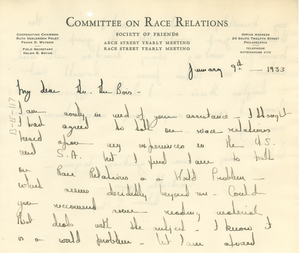 COMMITTEE ON RACE RELATIONS
SOCIETY OF FRIENDS
ARCH STREET YEARLY MEETING
RACE STREET YEARLY MEETING
COOPERATING CHAIRMEN
FRANK D. WATSON
FIELD SECRETARY
HELEN R. BRYAN
OFFICE ADDRESS
20 SOUTH TWELFTH STREET
PHILADELPHIA
TELEPHONE
January 9th — 1933
My dear Dr. Du Bois —
I am sorely in need of your assistance. I thought
I had agreed to talk on race relations
based upon my experiences in the U.S.
and S.A. but I find I am to talk
on Race Relations as a World Problem —
which seems decidedly beyond me. Could
you recommend some reading material
that deals with the subject. I know it
is a world problem — but I am afraid